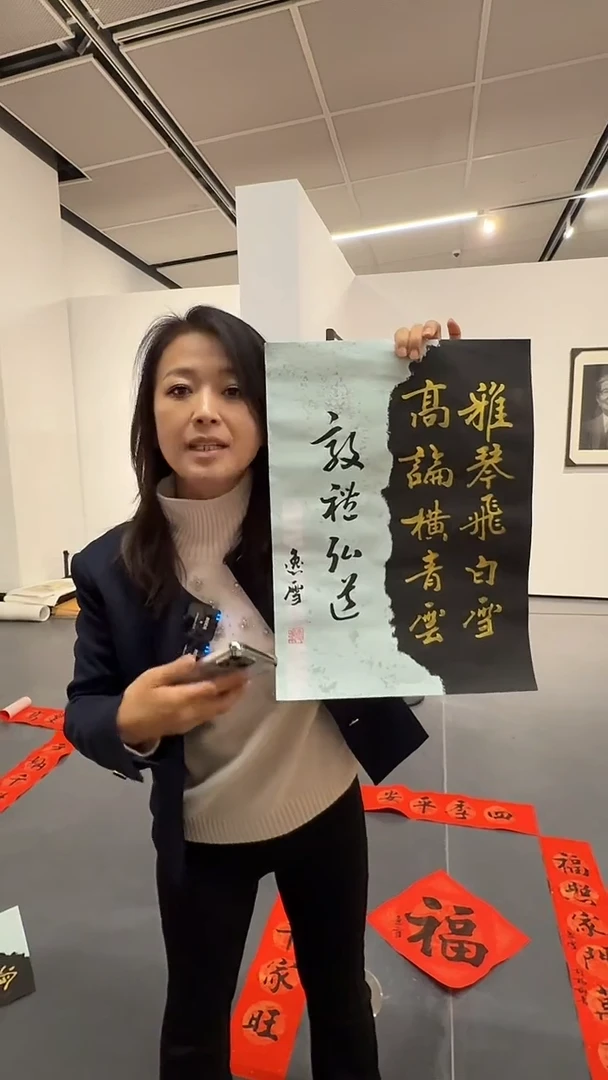 雅琴飛白雪
高論橫青雲
敦禮弘道
惠雪
四季平安
福
福照家門萬
家旺